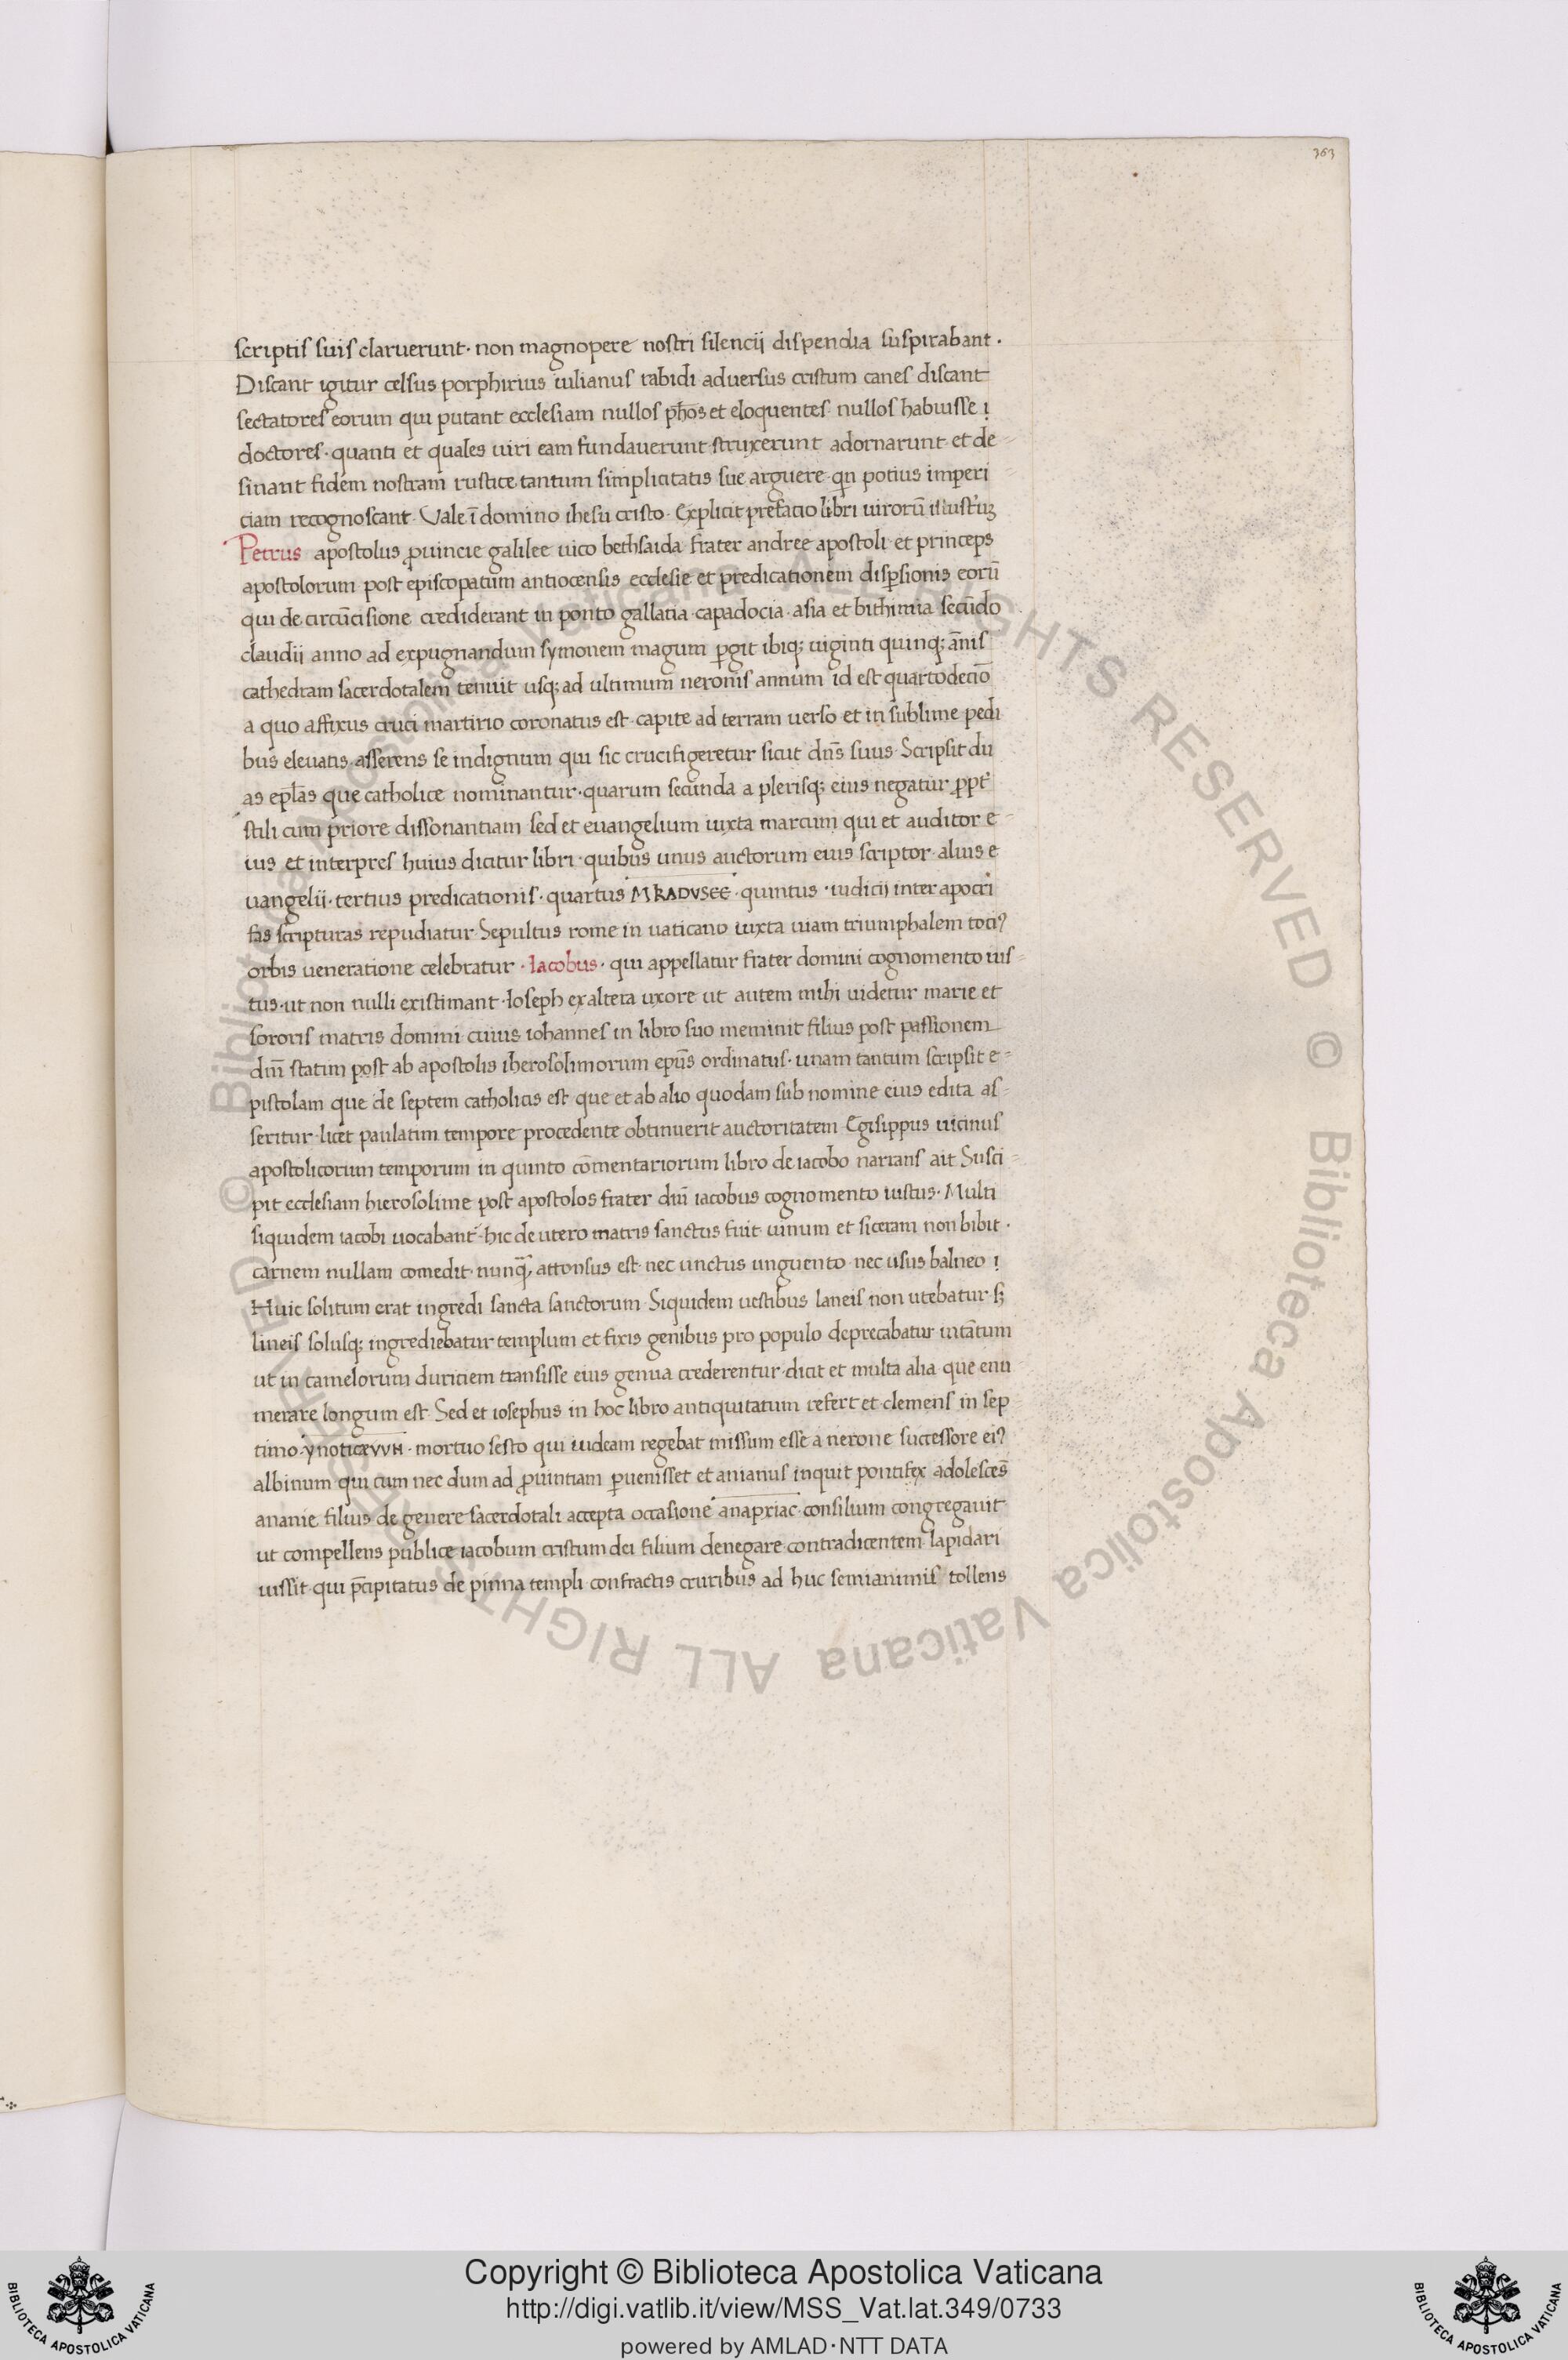 363
scriptis suis claruerunt · non magnopere nostri silencij dispendia suspirabant ·
Discant igitur celsus porphirius iulianus rabidi aduersus cristum canes discant
sectatores eorum qui putant ecclesiam nullos ph̄os et eloquentes nullos habuisse
doctores · quanti et quales uiri eam fundauerunt struxerunt adornarunt et de
sinant fidem nostram rustice tantum simplicitatis sue arguere qn̄ potius imperi
ciam recognoscant · Vale ī domino ihesu cristo · Explicit prefatio libri uirorū
Petrus apostolus ꝓuincie galilee uico bethsaida frater andree apostoli et princeps
apostolorum post episcopatum antiocensis ecclesie et predicationem disꝑsionis eorū
qui de circūcisione crediderant in ponto gallatia capadocia · asia et bithinia secūdo
claudii anno ad expugnandum symonem magum ꝑgit ibiqꝫ uiginti quinqꝫ ānis
cathedram sacerdotalem tenuit usqꝫ ad ultimum neronis annum id est quartodecīo
a quo affixus cruci martirio coronatus est · capite ad terram uerso et in sublime pedi
bus eleuatis · asserens se indignum qui sic crucifigeretur sicut dn̄s suus · Scripsit du
as ep̄las que catholice nominantur · quarum secunda a plerisqꝫ eius negatur
stili cum priore dissonantiam sed et euangelium iuxta marcum qui et auditor e
ius et interpres huius dicitur libri · quibus unus auctorum eius scriptor · alius e
uangelii · tertius predicationis · quartus MRADVSEE · quintus · iudicij inter apocri
fas scripturas repudiatur · Sepultus rome in uaticano iuxta uiam triumphalem toti⁹
orbis ueneratione celebratur · Iacobus · qui appellatur frater domini cognomento ius
tus · ut non nulli existimant · Ioseph ex altera uxore ut autem mihi uidetur marie et
sororis matris domini cuius iohannes in libro suo meminit filius post passionem
dn̄i statim post ab apostolis iherosolimorum ep̄us ordinatus · unam tantum scripsit e
pistolam que de septem catholicis est que et ab alio quodam sub nomine eius edita as
seritur · licet paulatim tempore procedente obtinuerit auctoritatem Egisippus uicinus
apostolicorum temporum in quinto cōmentariorum libro de iacobo narrans ait Susci
pit ecclesiam hierosolime post apostolos frater dn̄i iacobus cognomento iustus · Multi
siquidem iacobi uocabant̄ · hic de utero matris sanctus fuit uinum et siceram non bibit ·
carnem nullam comedit · nunq̄ attonsus est nec unctus unguento nec usus balneo
Huic solitum erat ingredi sancta sanctorum · Siquidem uestibus laneis non utebatur sꝫ
lineis solusqꝫ ingrediebatur templum et fixis genibus pro populo deprecabatur intātum
ut in camelorum duriciem transisse eius genua crederentur · dicit et multa alia que enu
merare longum est · Sed et iosephus in hoc libro antiquitatum refert et clemens in sep
timo · mortuo festo qui iudeam regebat missum esse a nerone successore ei⁹
albinum qui cum nec dum ad ꝓuintiam ꝑuenisset et anianus inquit pontifex adolescēs
ananie filius de genere sacerdotali accepta occasione anapxiac · consilium congregauit
ut compellens publice iacobum cristum dei filium denegare contradicentem lapidari
iussit · qui p̄cipitatus de pinna templi confractis cruribus ad huc semianimis tollens
© Biblioteca Apostolica Vaticana ALL RIGHTS RESERVED © Biblioteca Apostolica Vaticana ALL RIGHTS RESERVED
Copyright © Biblioteca Apostolica Vaticana
http://digi.vatlib.it/view/MSS_Vat.lat.349/0733
powered by AMLAD·NTT DATA
BIBLIOTECA APOSTOLICA VATICANA
BIBLIOTECA APOSTOLICA VATICANA